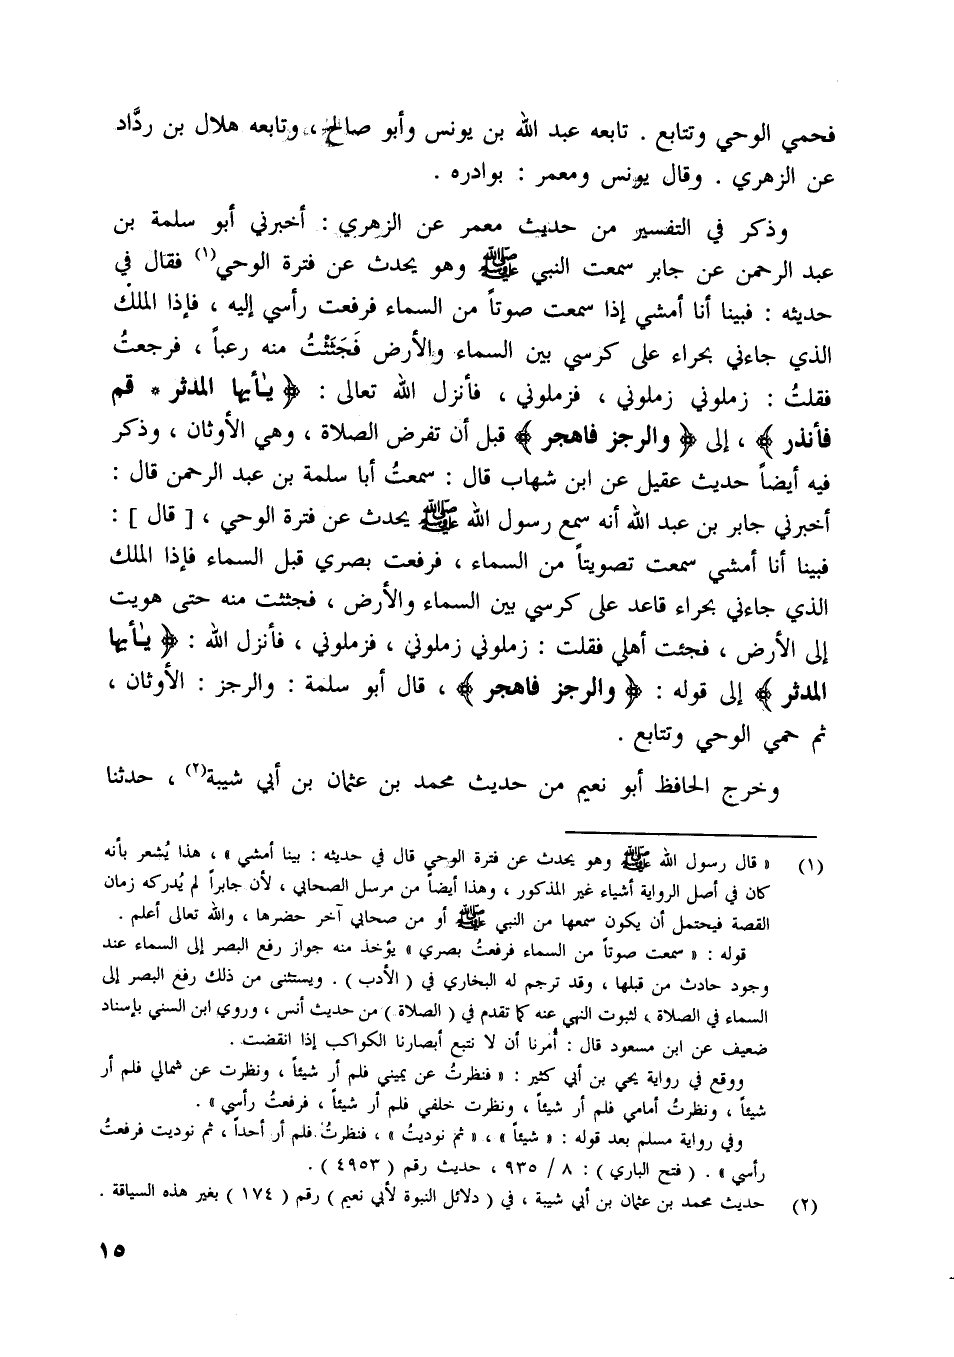 فحمي الوحي وتتابع . تابعه عبد الله بن يونس وأبو صالح ، وتابعه هلال بن ردَّاد
عن الزهري . وقال يونس ومعمر : بوادره .
وذكر في التفسير من حديث معمر عن الزهري : أخبرني أبو سلمة بن
عبد الرحمن عن جابر سمعت النبي ﷺ وهو يحدث عن فترة الوحي(١) فقال في
حديثه : فبينا أنا أمشي إذا سمعت صوتاً من السماء فرفعت رأسي إليه ، فإذا الملك
الذي جاءني بحراء على كرسي بين السماء والأرض فَجَئَثْتُ منه رعباً ، فرجعتُ
فقلتُ : زملوني زملوني ، فزملوني ، فأنزل الله تعالى : ﴿ يـٰأيها المدثر * قم
فأنذر ﴾ ، إلى ﴿ والرجز فاهجر ﴾ قبل أن تفرض الصلاة ، وهي الأوثان ، وذكر
فيه أيضاً حديث عقيل عن ابن شهاب قال : سمعتُ أبا سلمة بن عبد الرحمن قال :
أخبرني جابر بن عبد الله أنه سمع رسول الله ﷺ يحدث عن فترة الوحي ، [ قال ] :
فبينا أنا أمشي سمعت تصويتاً من السماء ، فرفعت بصري قبل السماء فإذا الملك
الذي جاءني بحراء قاعد على كرسي بين السماء والأرض ، فجئثت منه حتى هويت
إلى الأرض ، فجئت أهلي فقلت : زملوني زملوني ، فزملوني ، فأنزل الله : ﴿ يـٰأيها
المدثر ﴾ إلى قوله : ﴿ والرجز فاهجر ﴾ ، قال أبو سلمة : والرجز : الأوثان ،
ثم حمي الوحي وتتابع .
وخرج الحافظ أبو نعيم من حديث محمد بن عثمان بن أبي شيبة(٢) ، حدثنا
(١) « قال رسول الله ﷺ وهو يحدث عن فترة الوحي قال في حديثه : بينا أمشي » ، هذا يُشعر بأنه
كان في أصل الرواية أشياء غير المذكور ، وهذا أيضاً من مرسل الصحابي ، لأن جابراً لم يُدركه زمان
القصة فيحتمل أن يكون سمعها من النبي ﷺ أو من صحابي آخر حضرها ، والله تعالى أعلم .
قوله : « سمعت صوتاً من السماء فرفعتُ بصري » يؤخذ منه جواز رفع البصر إلى السماء عند
وجود حادث من قبلها ، وقد ترجم له البخاري في ( الأدب ) . ويستثنى من ذلك رفع البصر إلى
السماء في الصلاة ، لثبوت النهي عنه كما تقدم في ( الصلاة ) من حديث أنس ، وروي ابن السني بإسناد
ضعيف عن ابن مسعود قال : أُمرنا أن لا نتبع أبصارنا الكواكب إذا انقضت .
ووقع في رواية يحي بن أبي كثير : « فنظرتُ عن يميني فلم أر شيئاً ، ونظرت عن شمالي فلم أر
شيئاً ، ونظرتُ أمامي فلم أر شيئاً ، ونظرت خلفي فلم أر شيئاً ، فرفعتُ رأسي » .
وفي رواية مسلم بعد قوله : « شيئاً » ، « ثم نوديتُ » ، فنظرتُ فلم أر أحداً ، ثم نوديت فرفعتُ
رأسي » . ( فتح الباري ) : ٨ / ٩٣٥ ، حديث رقم ( ٤٩٥٣ ) .
(٢) حديث محمد بن عثمان بن أبي شيبة ، في ( دلائل النبوة لأبي نعيم ) رقم ( ١٧٤ ) بغير هذه السياقة .
١٥